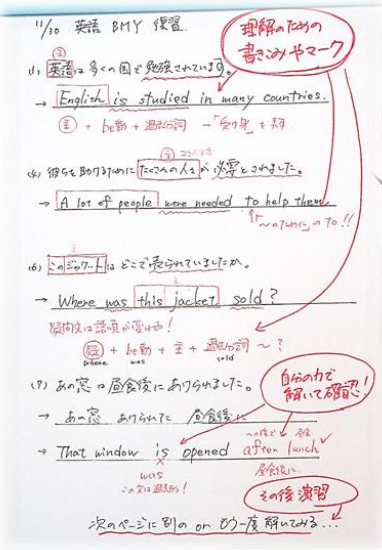 11/30 英語 BMY 復習
理解のための
書きこみやマーク
主
(1) 英語は多くの国で勉強されています。
→ English is studied in many countries.
主 + be動 + 過去分詞 →「受け身」を表す
主
(4) 彼らを助けるためにたくさんの人々が必要とされました。
→ A lot of people were needed to help them
「〜のために」のto!!
主
(6) このジャケットはどこで売られていましたか。
→ Where was this jacket sold?
疑問文は語順が変わる!
疑 + be動 + 主 + 過去分詞 〜?
where was sold
(7) あの窓は昼食後にあけられました。
自分の力で
解いて確認!
→ あの窓 あけられた 昼食後に
〜の後で 昼食
→ That window is opened after lunch
was
昼食後に
この文は過去形!
その後演習
次のページに別の or もう一度解いてみる...